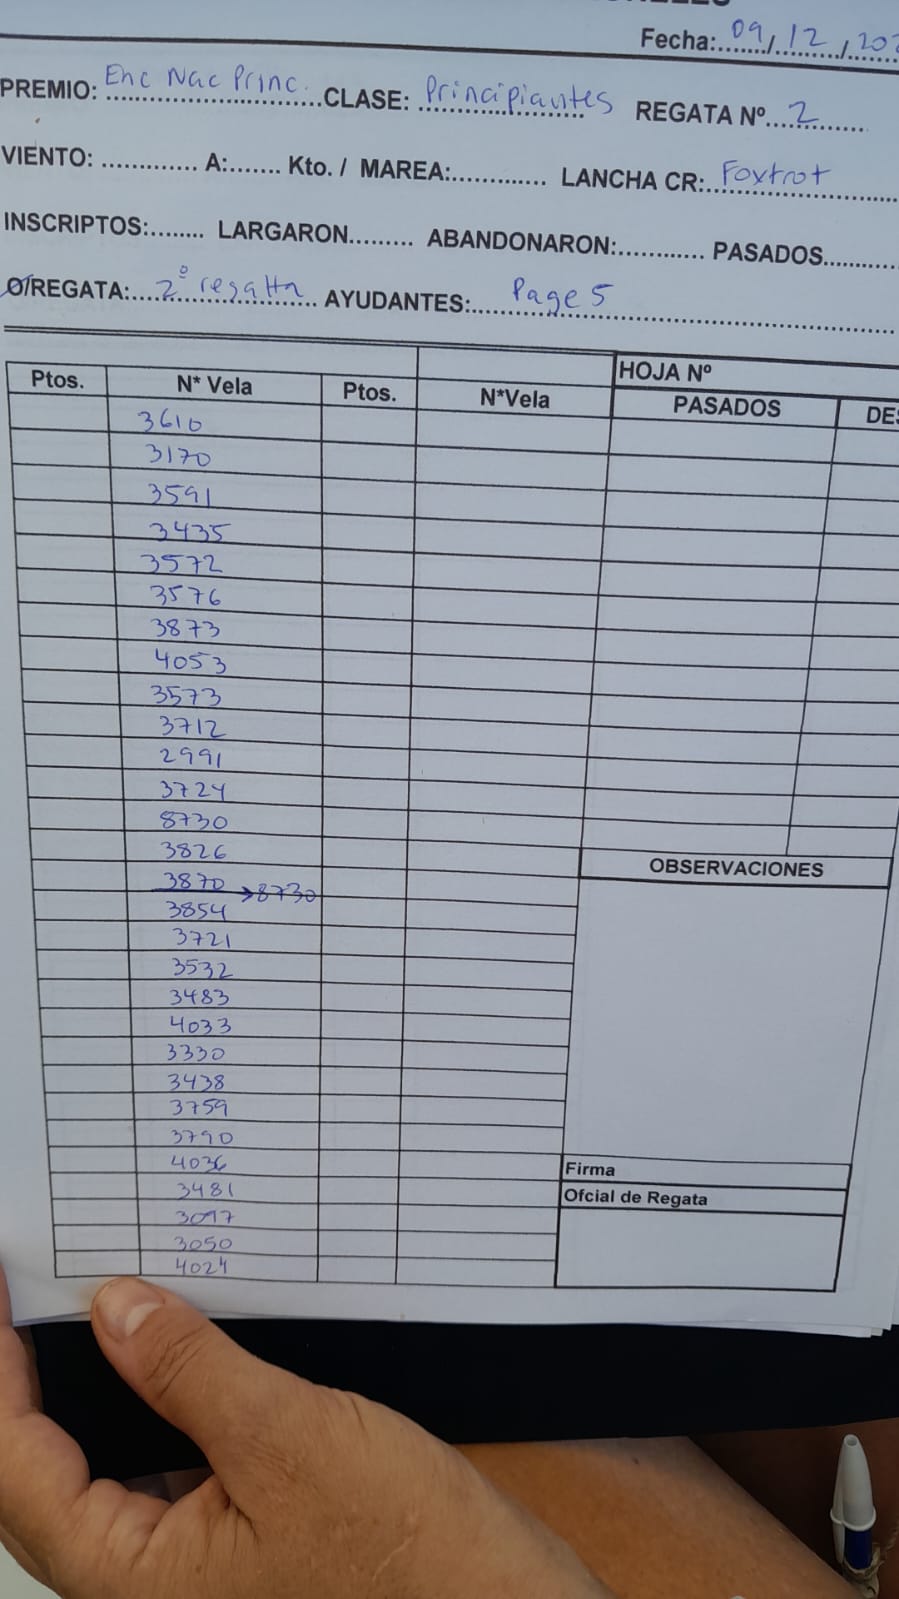 Fecha: 09/12/202
PREMIO: Enc Nac Princ. CLASE: Principiantes REGATA Nº 2
VIENTO: ............ A:....... Kto. / MAREA:............. LANCHA CR: Foxtrot
INSCRIPTOS:........ LARGARON......... ABANDONARON:........... PASADOS...........
O/REGATA: 2º regatta AYUDANTES: Page 5
HOJA Nº
Ptos. N* Vela Ptos. N*Vela PASADOS DES
3610
3170
3591
3435
3572
3576
3873
4053
3573
3712
2991
3724
8730
3826
3870 →8730
3854
3721
3532
3483
4033
3330
3438
3759
3790
4036
3481
3097
3050
4024
OBSERVACIONES
Firma
Ofcial de Regata